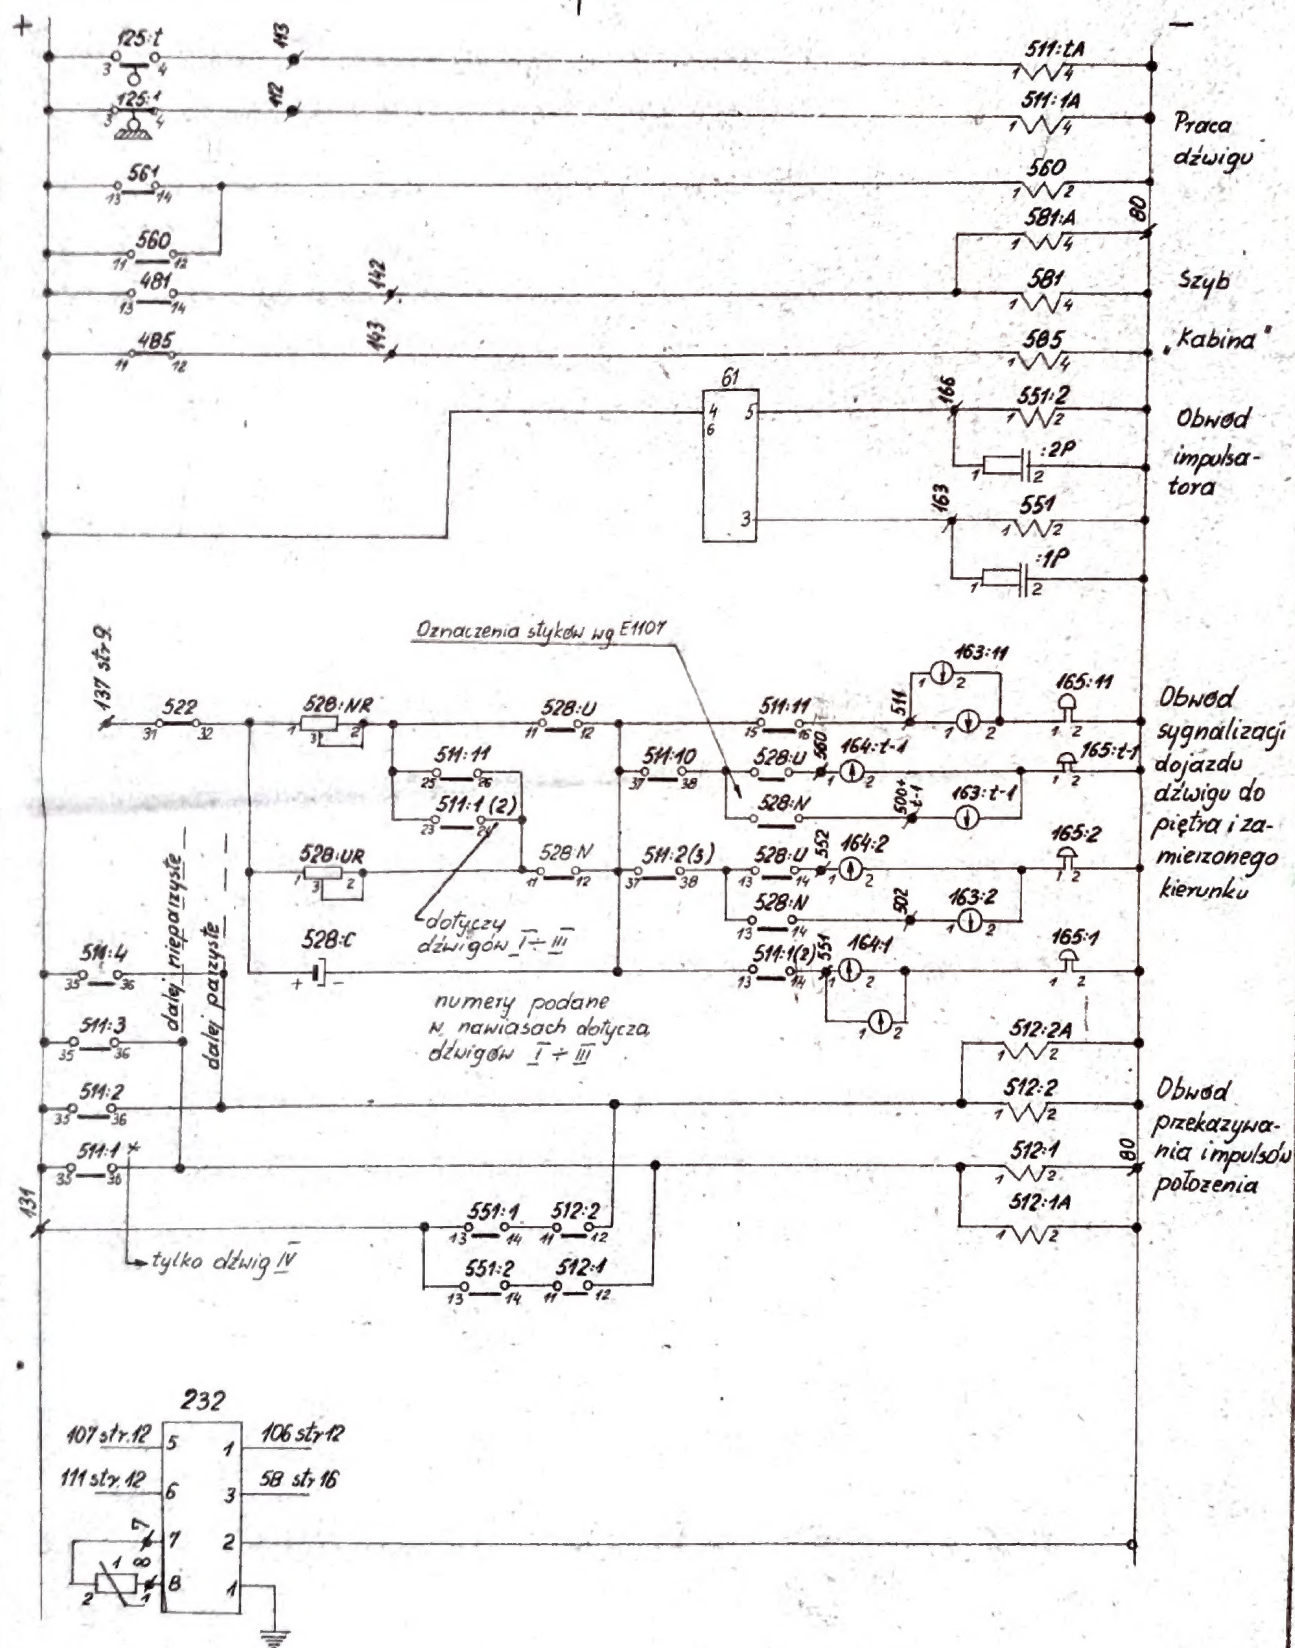 +
−
125:t
3 4
113
511:tA
1 4
125:1
3 4
112
511:1A
1 4
Praca
dźwigu
561
13 14
560
1 2
80
560
11 12
581:A
1 4
481
13 14
142
581
1 4
Szyb
485
11 12
143
585
1 4
"Kabina"
61
4 5
6
3
166
551:2
1 2
:2P
1 2
163
551
1 2
:1P
1 2
Obwód
impulsa-
tora
Oznaczenia styków wg E1107
137 str 9
522
31 32
528:NR
1 3 2
528:U
11 12
511:11
15 16
511
163:11
1 2
1 2
165:11
1 2
511:11
25 26
511:10
37 38
528:U
560
t-1
164:t-1
1 2
165:t-1
1 2
511:1 (2)
23 24
528:N
500+
t-1
163:t-1
1 2
528:UR
1 3 2
528:N
11 12
511:2(3)
37 38
528:U
13 14
552
164:2
1 2
165:2
1 2
528:N
13 14
502
163:2
1 2
dotyczy
dźwigów I ÷ III
528:C
+ −
511:1(2)
13 14
551
164:1
1 2
1 2
165:1
1 2
Obwód
sygnalizacji
dojazdu
dźwigu do
piętra i za-
mierzonego
kierunku
numery podane
w nawiasach dotyczą
dźwigów I ÷ III
dalej nieparzyste
dalej parzyste
511:4
35 36
511:3
35 36
512:2A
1 2
511:2
35 36
512:2
1 2
511:1 *
35 36
512:1
1 2
80
512:1A
1 2
Obwód
przekazywa-
nia impulsów
położenia
131
551:1
13 14
512:2
11 12
tylko dźwig IV
551:2
13 14
512:1
11 12
232
107 str.12 5 1 106 str 12
111 str.12 6 3 58 str 16
7 7 2
1 8 8 1
2 1